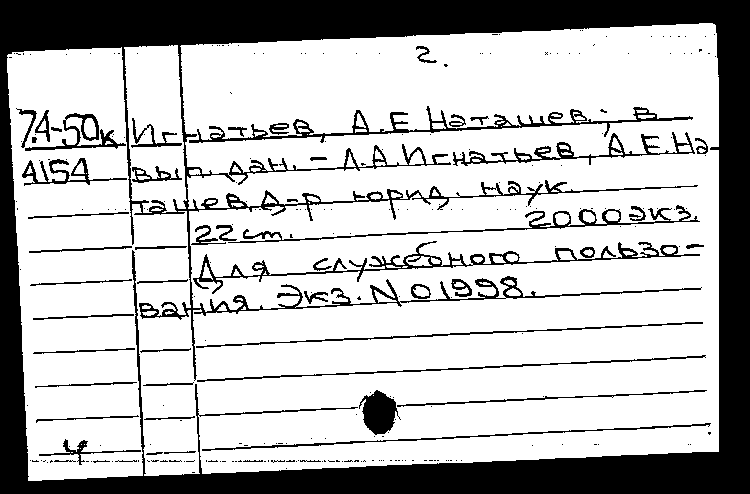 2.
74-50к Игнатьев, А.Е Наташев; в
4154 вып. дан. - Л.А.Игнатьев, А.Е.На-
ташев, д-р юрид. наук.
22 cm. 2000 экз.
Для служебного пользо-
вания. Экз. N 01998.